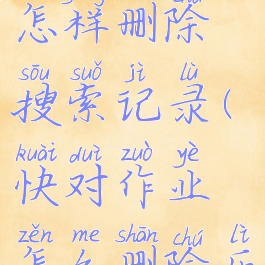 怎样删除
sōu suǒ jì lù
搜索记录(
kuài duì zuò yè
快对作业
zěn me shān chú lì
怎么删除历